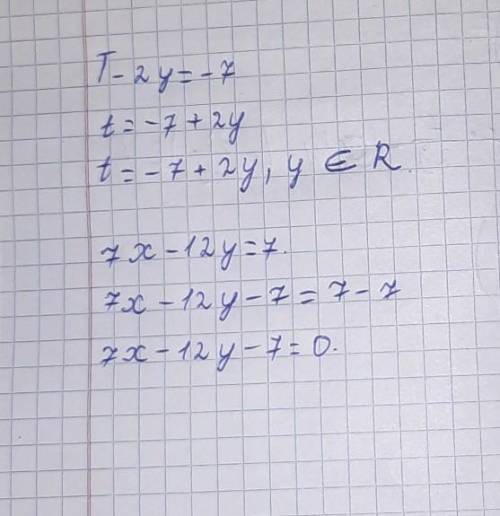 T - 2y = -7
t = -7 + 2y
t = -7 + 2y, y ∈ R
7x - 12y = 7.
7x - 12y - 7 = 7 - 7
7x - 12y - 7 = 0.